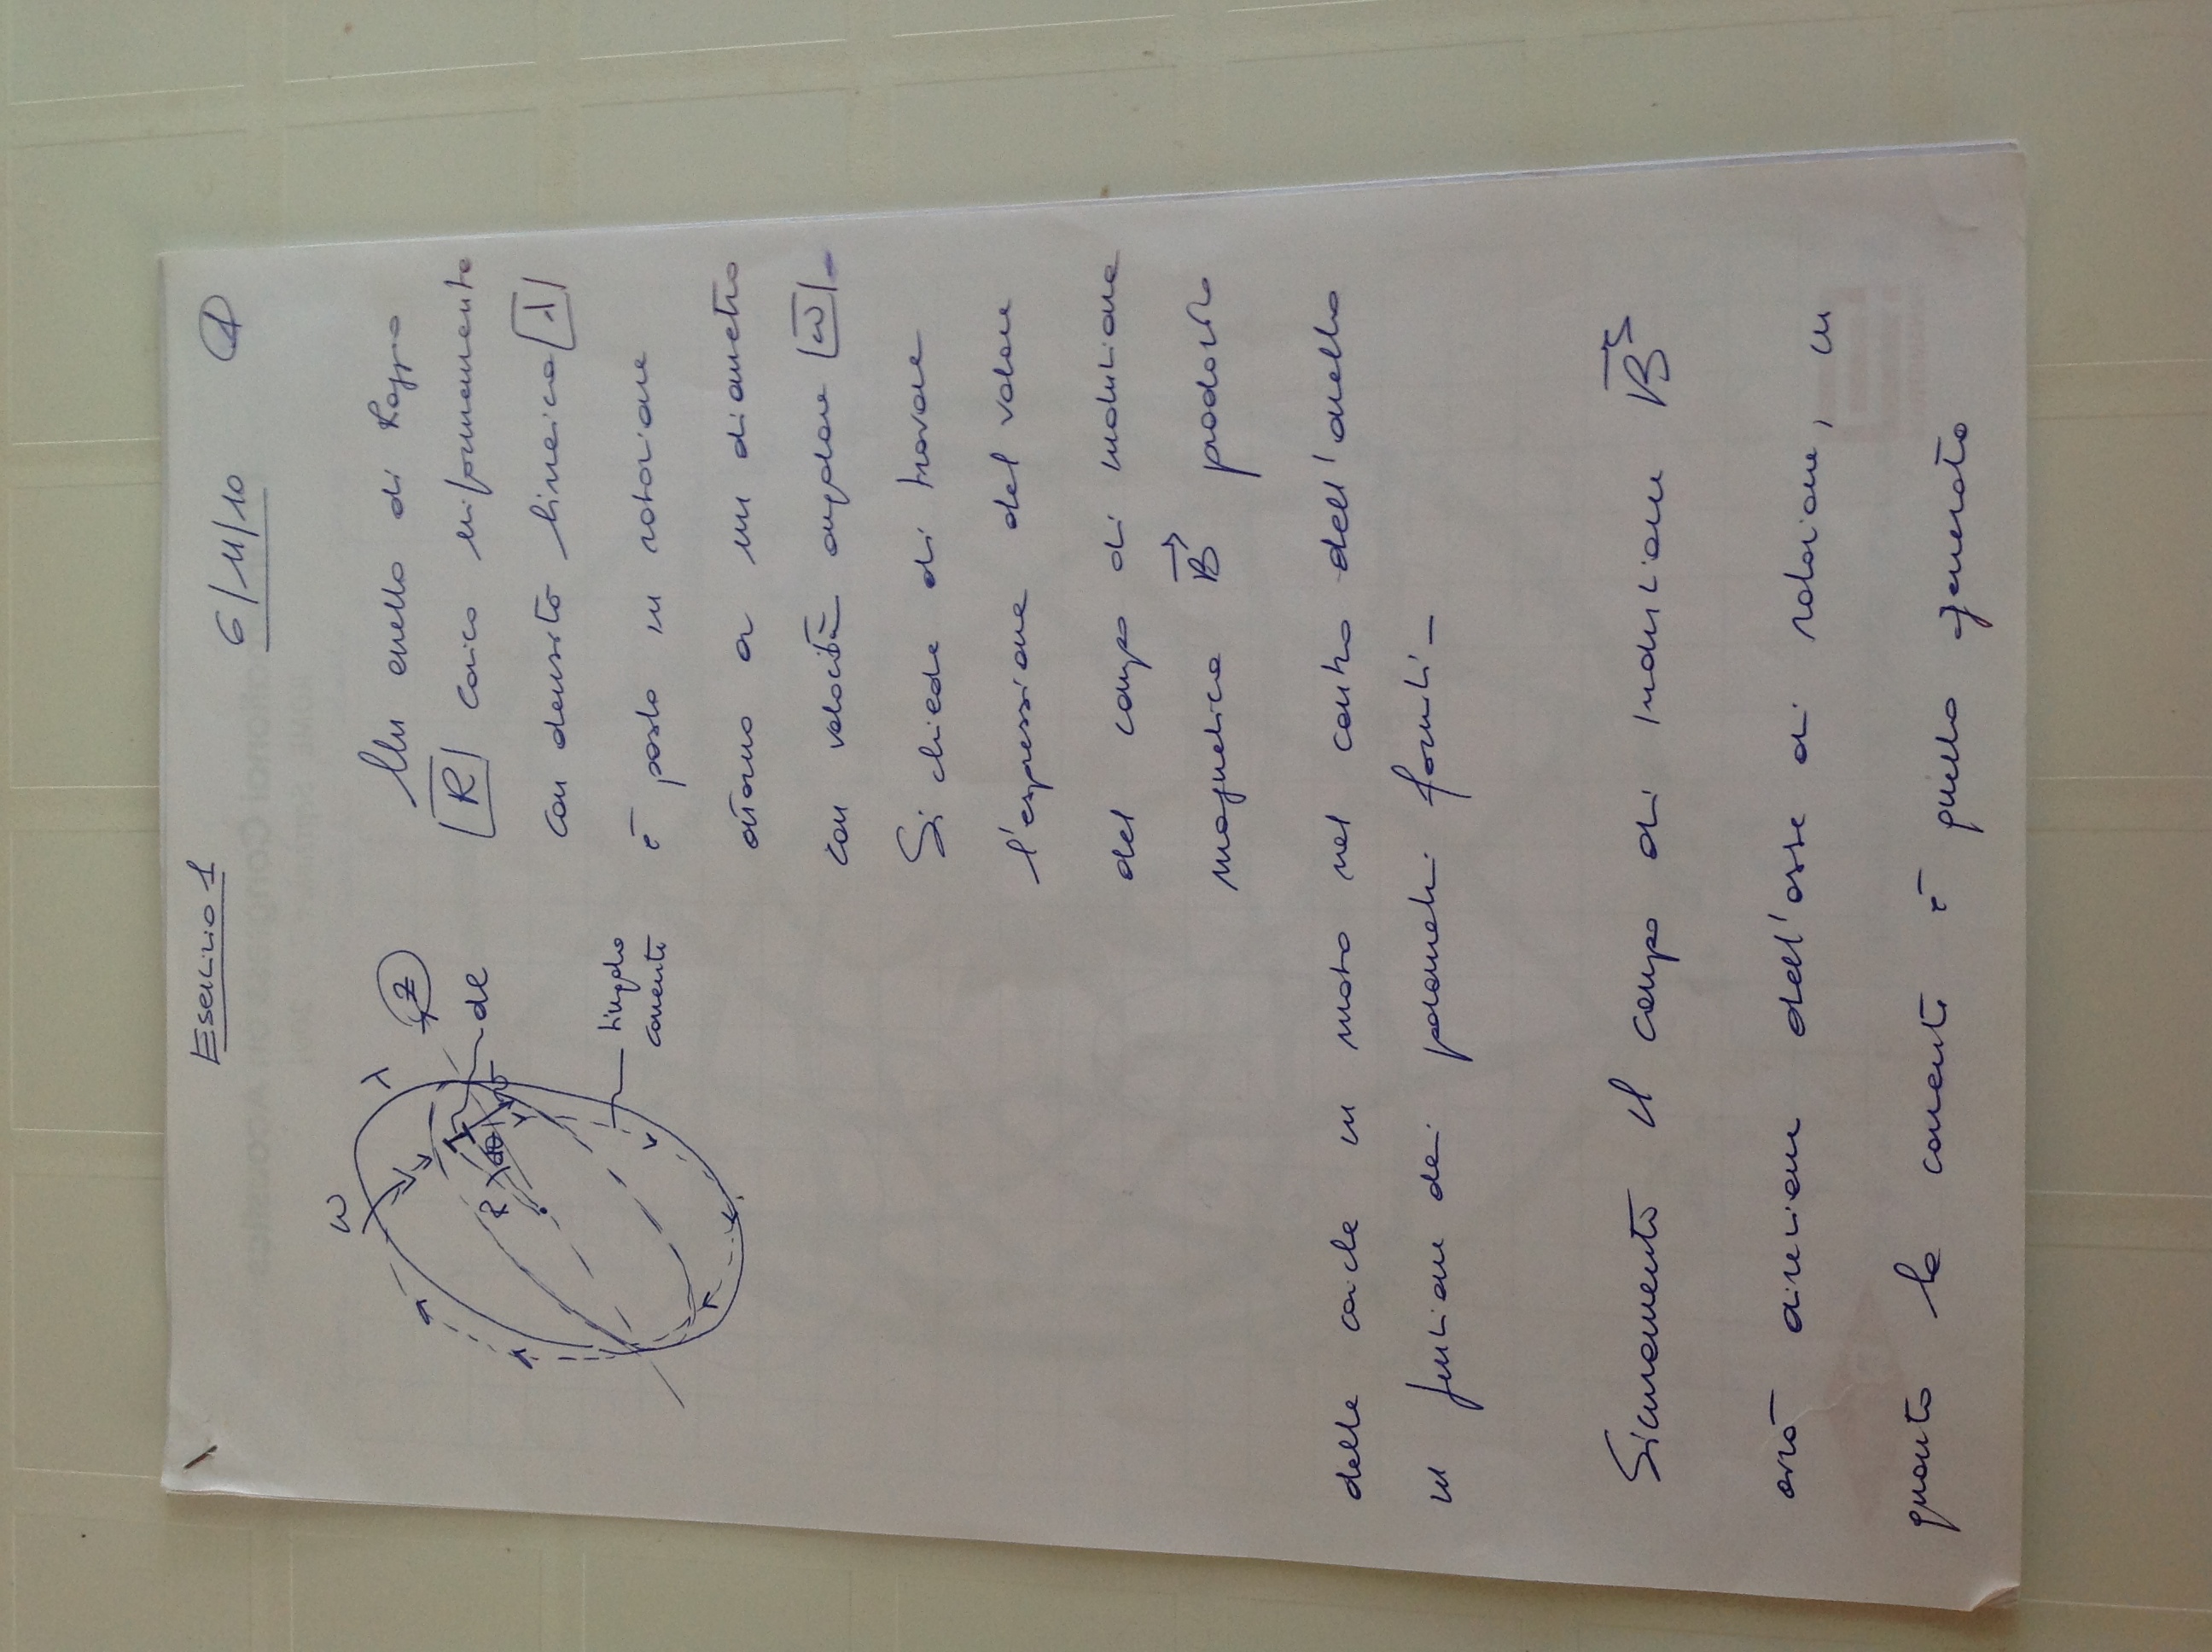 Esercizio 1
6/11/10
1
ω
λ
z
R
dθ
r
dl
singola
corrente
Un anello di raggio
R carico uniformemente
con densità lineica λ
è posto in rotazione
attorno a un diametro
con velocità angolare ω.
Si chiede di trovare
l'espressione del valore
del campo di induzione
magnetica B prodotto
dalle cariche in moto nel centro dell'anello
in funzione dei parametri forniti.
Sicuramente il campo di induzione B
avrà direzione dell'asse di rotazione, in
quanto la corrente è quella generata